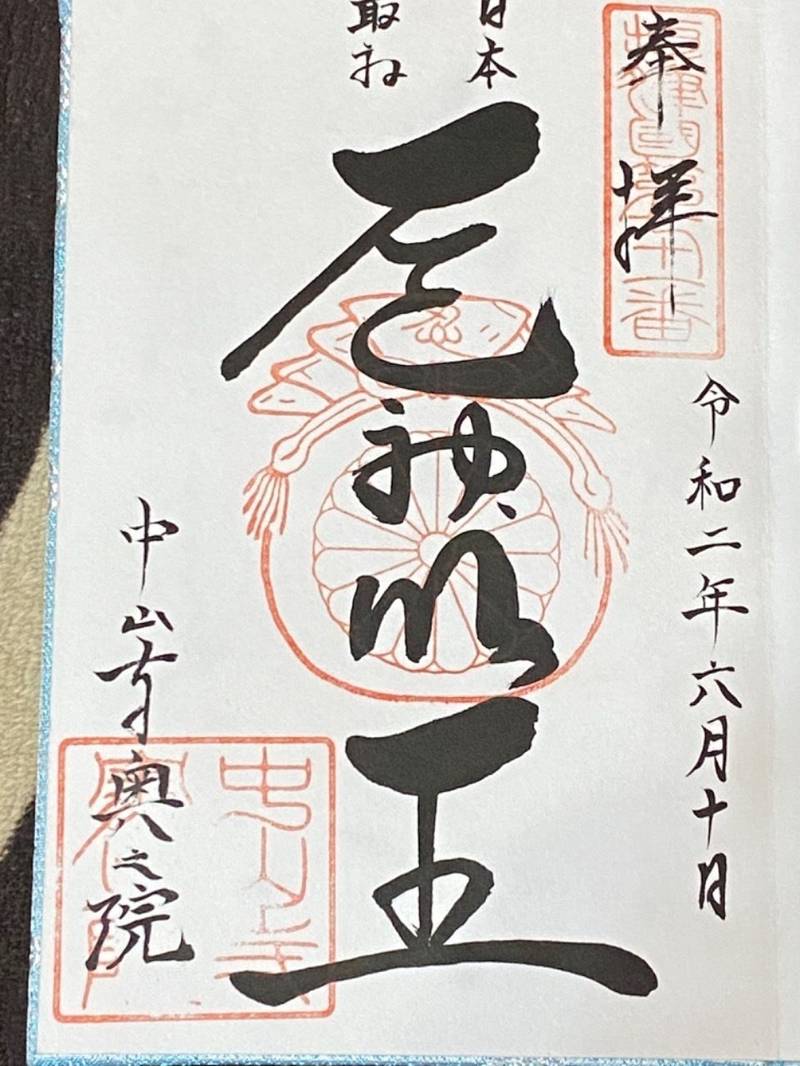 奉拝
令和二年六月十日
日本
最初
厄神明王
中山寺奥之院
中山寺